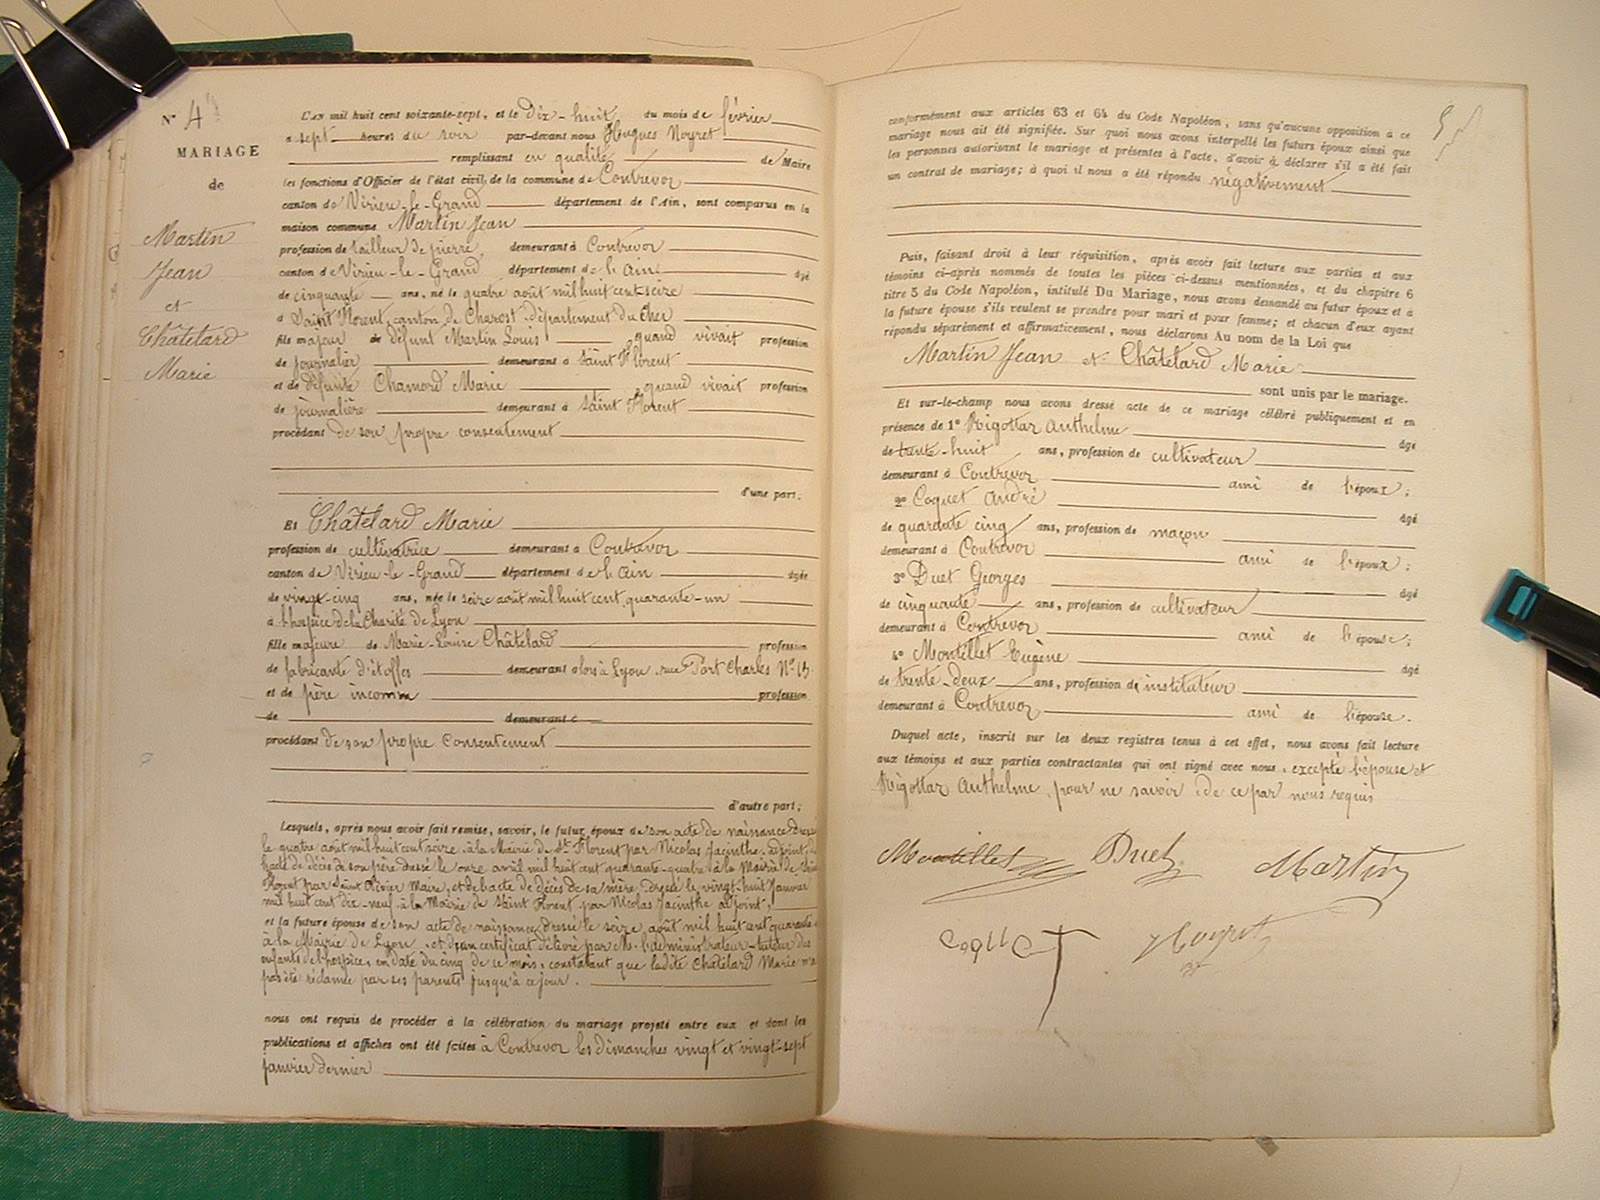 N° 4
MARIAGE
de
Martin
Jean
et
Châtelard
Marie
L'AN mil huit cent soixante-sept, et le Dix-huit du mois de février
a sept heures du soir par-devant nous Hugues Noyret
remplissant en qualité de Maire
les fonctions d'Officier de l'état civil de la commune de Contrevoz
canton de Virieu-le-Grand département de l'Ain, sont comparus en la
maison commune Martin Jean
profession de tailleur de pierre demeurant à Contrevoz
canton de Virieu-le-Grand département de l'Ain âgé
de cinquante ans, né le quatre août mil huit cent seize
à Saint Florent, canton de Charost, département du Cher
fils majeur de défunt Martin Louis quand vivait profession
de journalier demeurant à Saint Florent
et de défunte Chamord Marie quand vivait profession
de journalière demeurant à Saint Florent
procédant de son propre consentement
d'une part;
Et Châtelard Marie
profession de cultivatrice demeurant à Contrevoz
canton de Virieu-le-Grand département de l'Ain âgée
de vingt-cinq ans, née le seize août mil huit cent quarante-un
à l'hospice de la Charité de Lyon
fille majeure de Marie-Louise Châtelard profession
de fabricante d'étoffes demeurant alors à Lyon, rue Port Charles N° 13
et de père inconnu profession
de demeurant à
procédant de son propre consentement
d'autre part;
Lesquels, après nous avoir fait remise, savoir, le futur époux de son acte de naissance dressé
le quatre août mil huit cent seize à la Mairie de St Florent par Nicolas Jacinthe adjoint, de
l'acte de décès de son père dressé le onze avril mil huit cent quarante-quatre à la Mairie de Saint
Florent par Saint Olivier Maire, et de l'acte de décès de sa mère, dressé le vingt-huit Janvier
mil huit cent dix-neuf à la Mairie de Saint Florent par Nicolas Jacinthe adjoint;
et la future épouse de son acte de naissance dressé le seize août mil huit cent quarante
à la Mairie de Lyon et d'un certificat délivré par M. l'administrateur-tuteur des
enfants de l'hospice, en date du cinq de ce mois, constatant que ladite Châtelard Marie n'a
pas été réclamée par ses parents jusqu'à ce jour.
nous ont requis de procéder à la célébration du mariage projeté entre eux et dont les
publications et affiches ont été faites à Contrevoz les dimanches vingt et vingt-sept
janvier dernier
conformément aux articles 63 et 64 du Code Napoléon, sans qu'aucune opposition à ce
mariage nous ait été signifiée. Sur quoi nous avons interpellé les futurs époux ainsi que
les personnes autorisant le mariage et présentes à l'acte, d'avoir à déclarer s'il a été fait
un contrat de mariage; à quoi il nous a été répondu négativement
Puis, faisant droit à leur réquisition, après avoir fait lecture aux parties et aux
témoins ci-après nommés de toutes les pièces ci-dessus mentionnées, et du chapitre 6
titre 5 du Code Napoléon, intitulé Du Mariage, nous avons demandé au futur époux et à
la future épouse s'ils veulent se prendre pour mari et pour femme; et chacun d'eux ayant
répondu séparément et affirmativement, nous déclarons Au nom de la Loi que
Martin Jean et Châtelard Marie
sont unis par le mariage.
Et sur-le-champ nous avons dressé acte de ce mariage célébré publiquement et en
présence de 1° Rigottaz Anthelme âgé
de trente-huit ans, profession de cultivateur
demeurant à Contrevoz ami de l'époux;
2° Coquet André âgé
de quarante cinq ans, profession de maçon
demeurant à Contrevoz ami de l'époux;
3° Duet Georges âgé
de cinquante ans, profession de cultivateur
demeurant à Contrevoz ami de l'épouse;
4° Montillet Eugène âgé
de trente-deux ans, profession de instituteur
demeurant à Contrevoz ami de l'épouse.
Duquel acte, inscrit sur les deux registres tenus à cet effet, nous avons fait lecture
aux témoins et aux parties contractantes qui ont signé avec nous, excepté l'épouse et
Rigottaz Anthelme, pour ne savoir de ce par nous requis
Montillet Duet Martin
Coquet Noyret